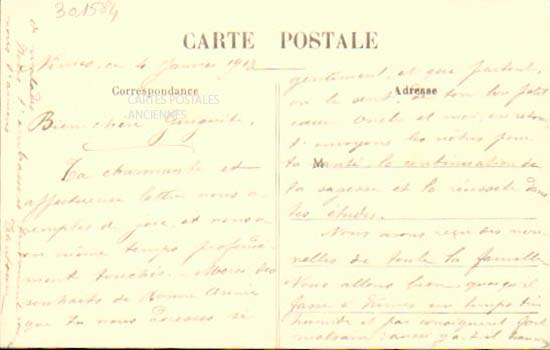 301584
CARTE POSTALE
Correspondance
Adresse
CARTES POSTALES
ANCIENNES
Nîmes, ce 4 Janvier 1912
Bien chère
Ta charmante et
affectueuse lettre nous a
remplis de joie, et nous a
en même temps profondé-
ment touchés. Merci des
souhaits de Bonne Année
que tu nous adresses si
gentiment, et que partent,
on le sent, de ton bon petit
cœur. Oncle et moi, en retour
t'envoyons les nôtres pour
M
ta santé, la continuation de
ta sagesse et la réussite dans
tes études.
Nous avons reçu des nou-
velles de toute la famille
Nous allons bien quoiqu'il
fasse à Nîmes un temps très
humide et par conséquent fort
malsain